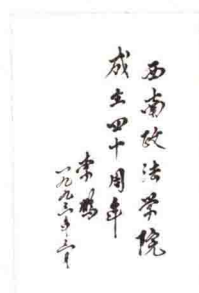 西南政法学院
成立四十周年
一九九三年三月